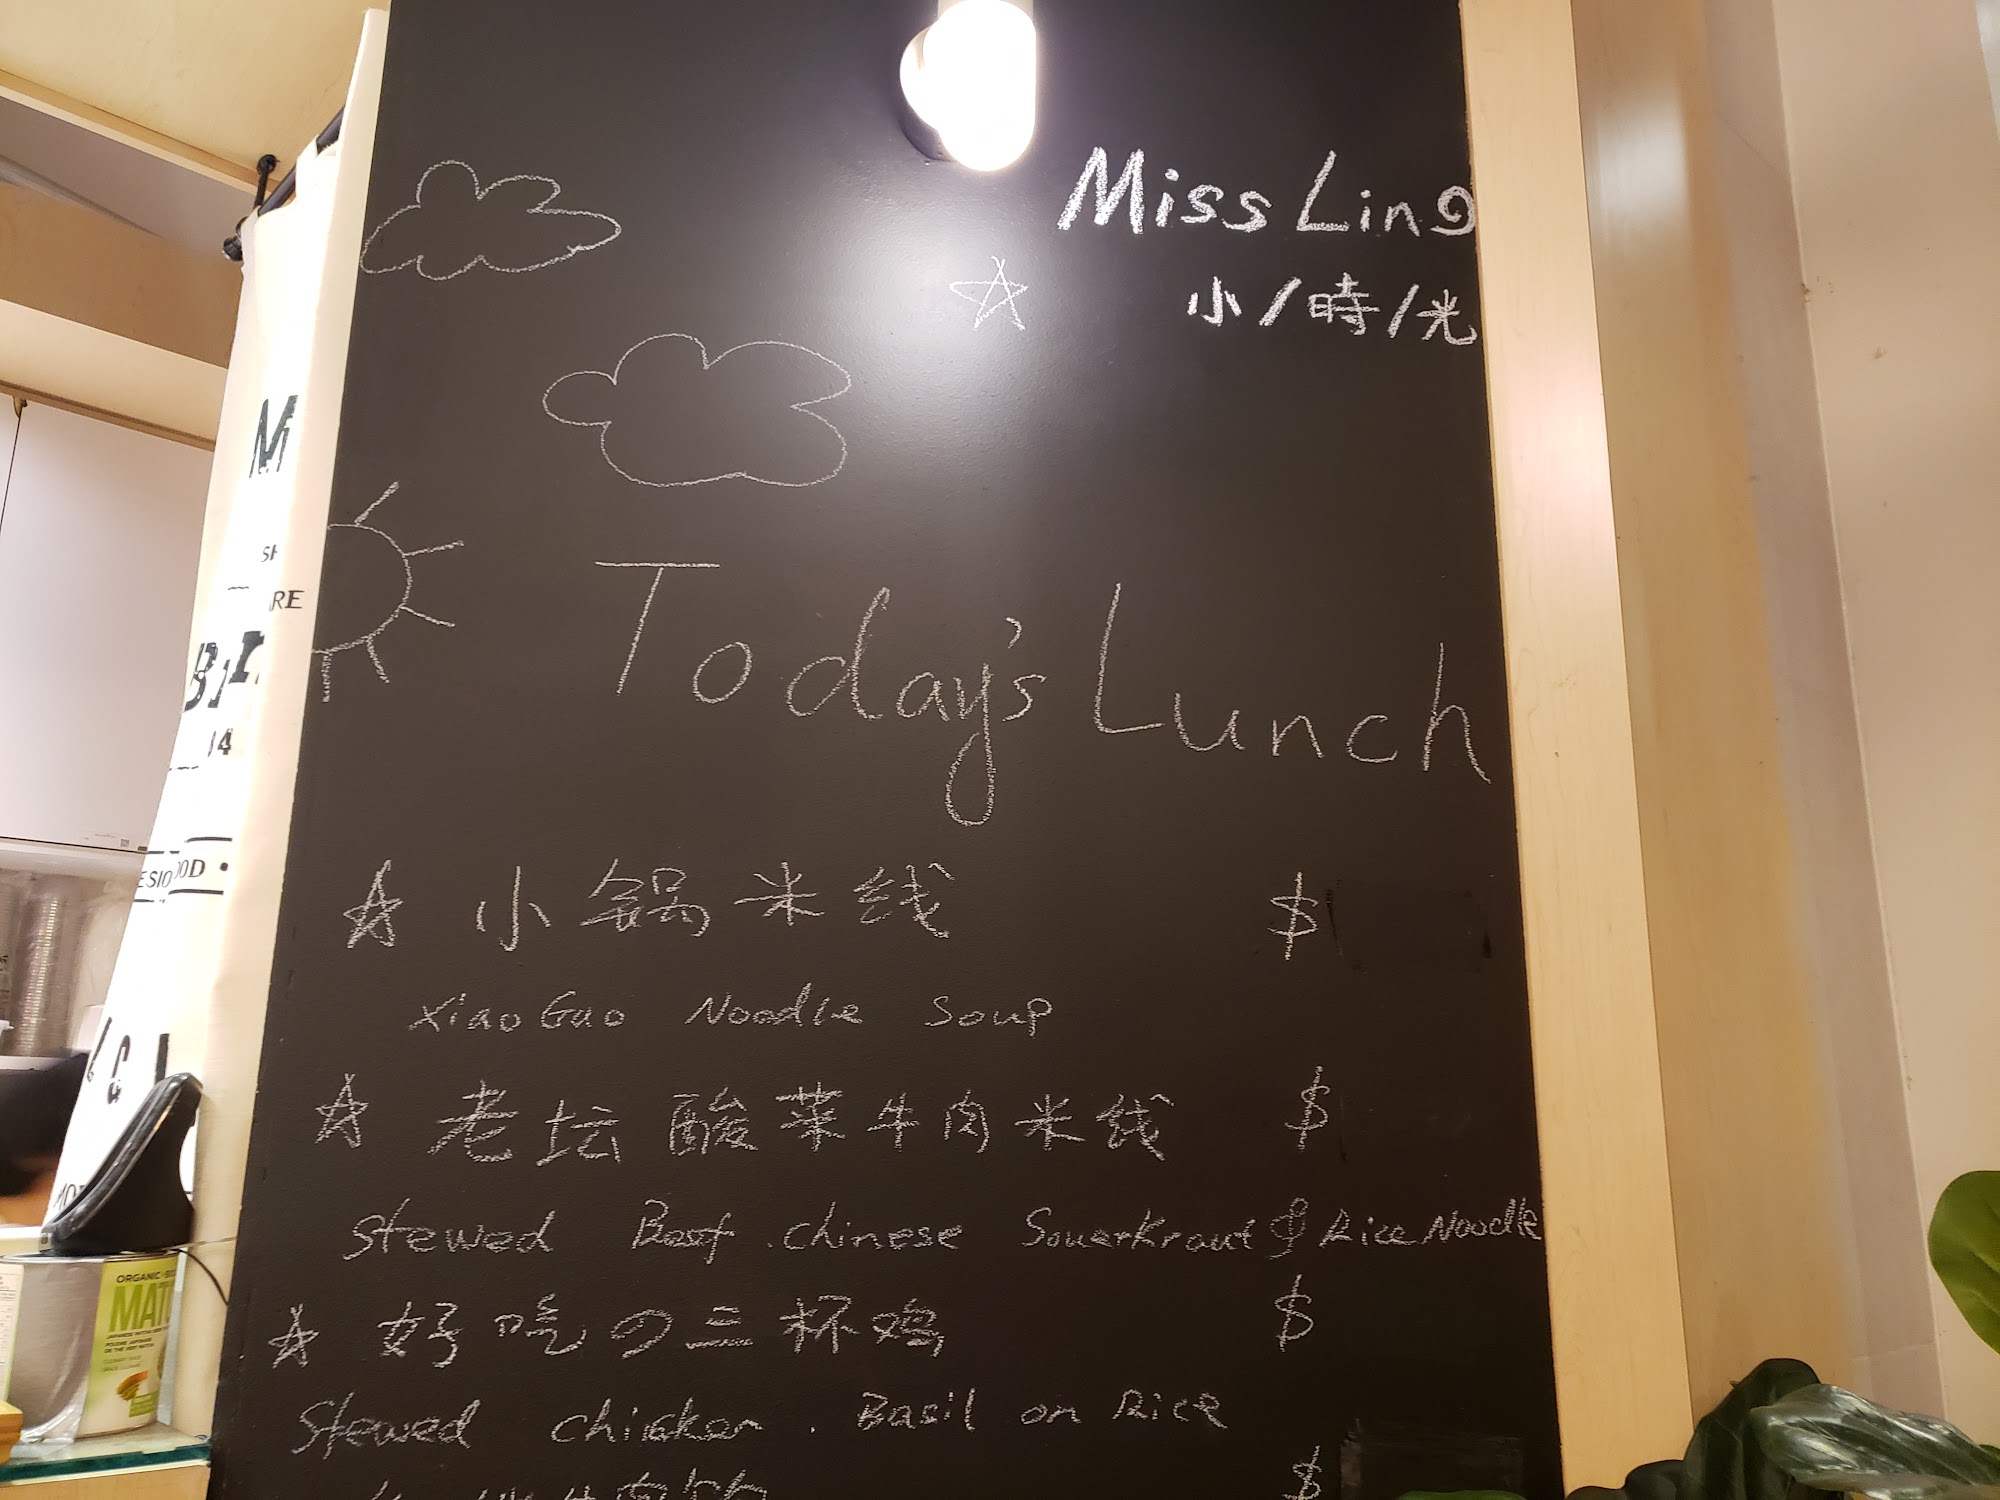 Miss Ling
小/時/光
Today's Lunch
小锅米线 $
XiaoGuo Noodle Soup
老坛酸菜牛肉米线 $
Stewed Beef . Chinese Souerkraut & Rice Noodle
好吃の三杯鸡 $
Stewed chicken . Basil on Rice
$
M
SH
RE
14
ESIO
OOD
ORGANIC
MAT